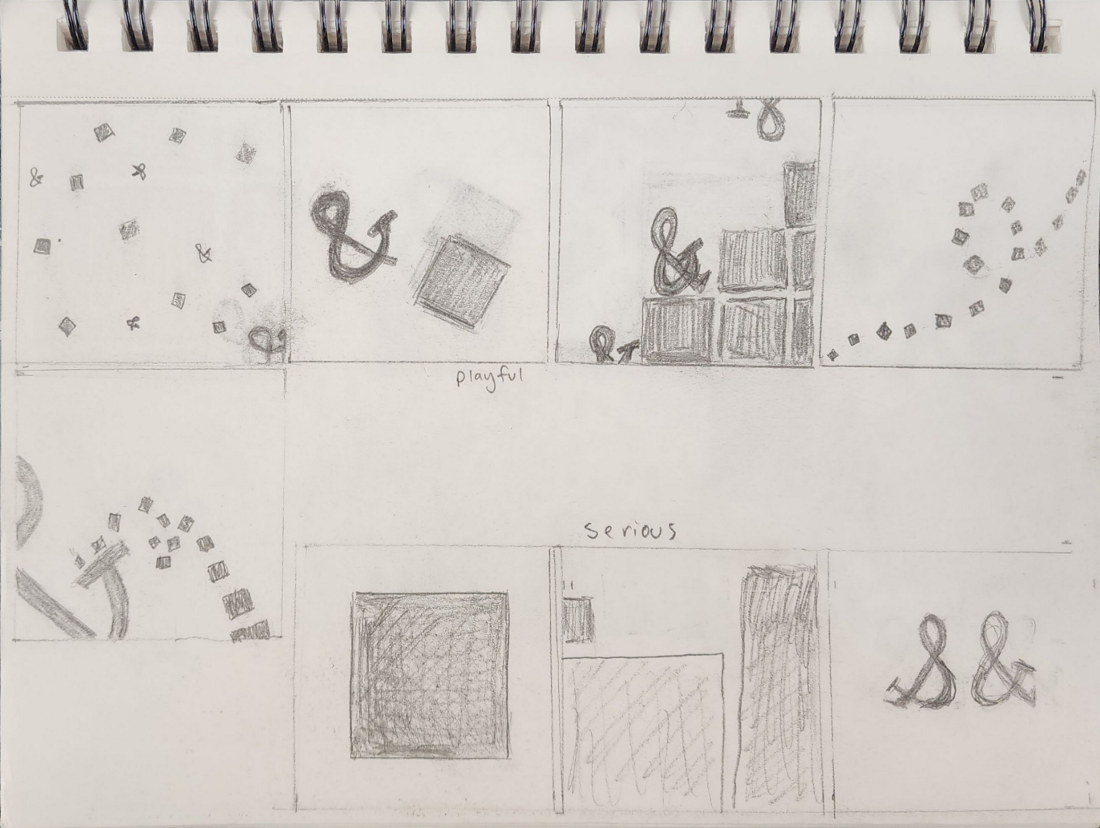 &
&
&
&
&
&
&
&
&
&
playful
serious
& &